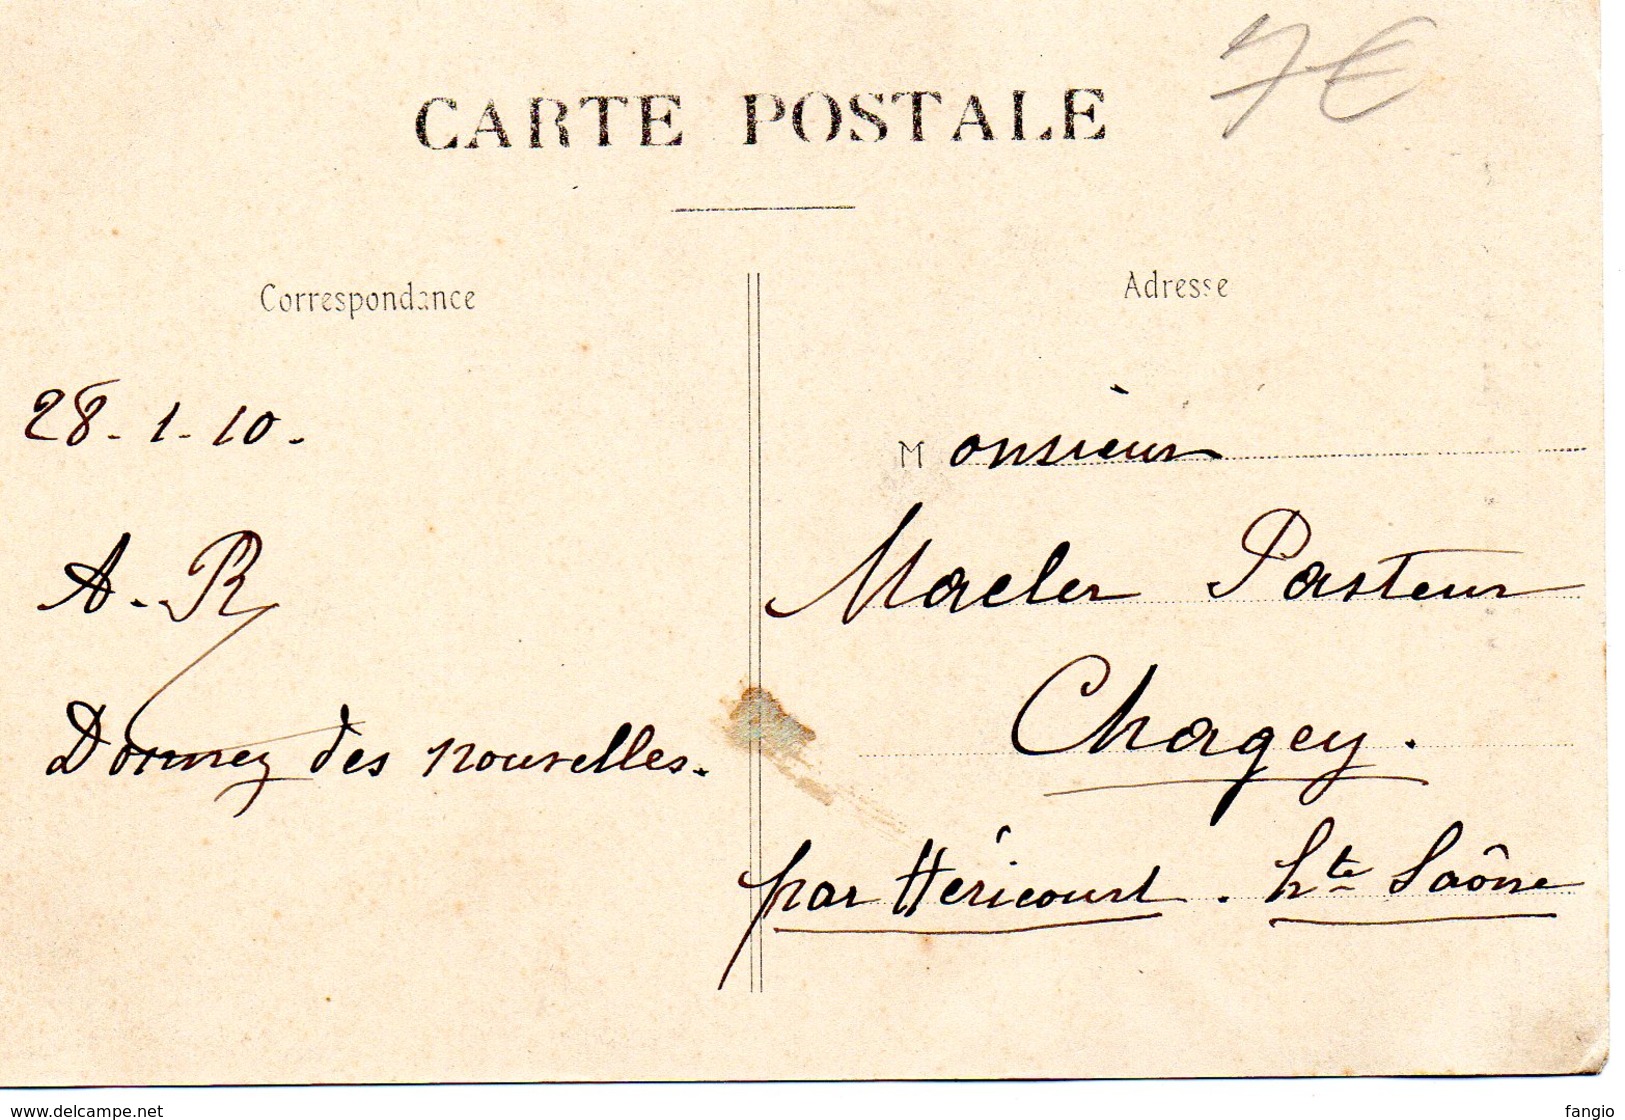 7€
CARTE POSTALE
Correspondance
Adresse
28-1-10.
A. R
Donnez des nouvelles.
Monsieur
Macler Pasteur
Chagey.
par Héricourt. Hte Saône
www.delcampe.net
fangio